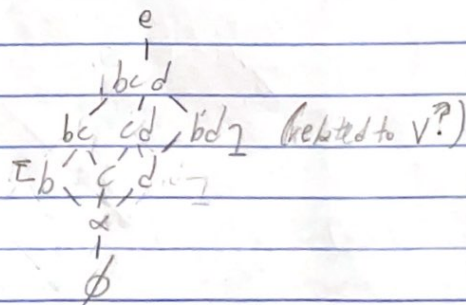 e
bcd
bc cd bd (related to V?)
b c d
α
ϕ